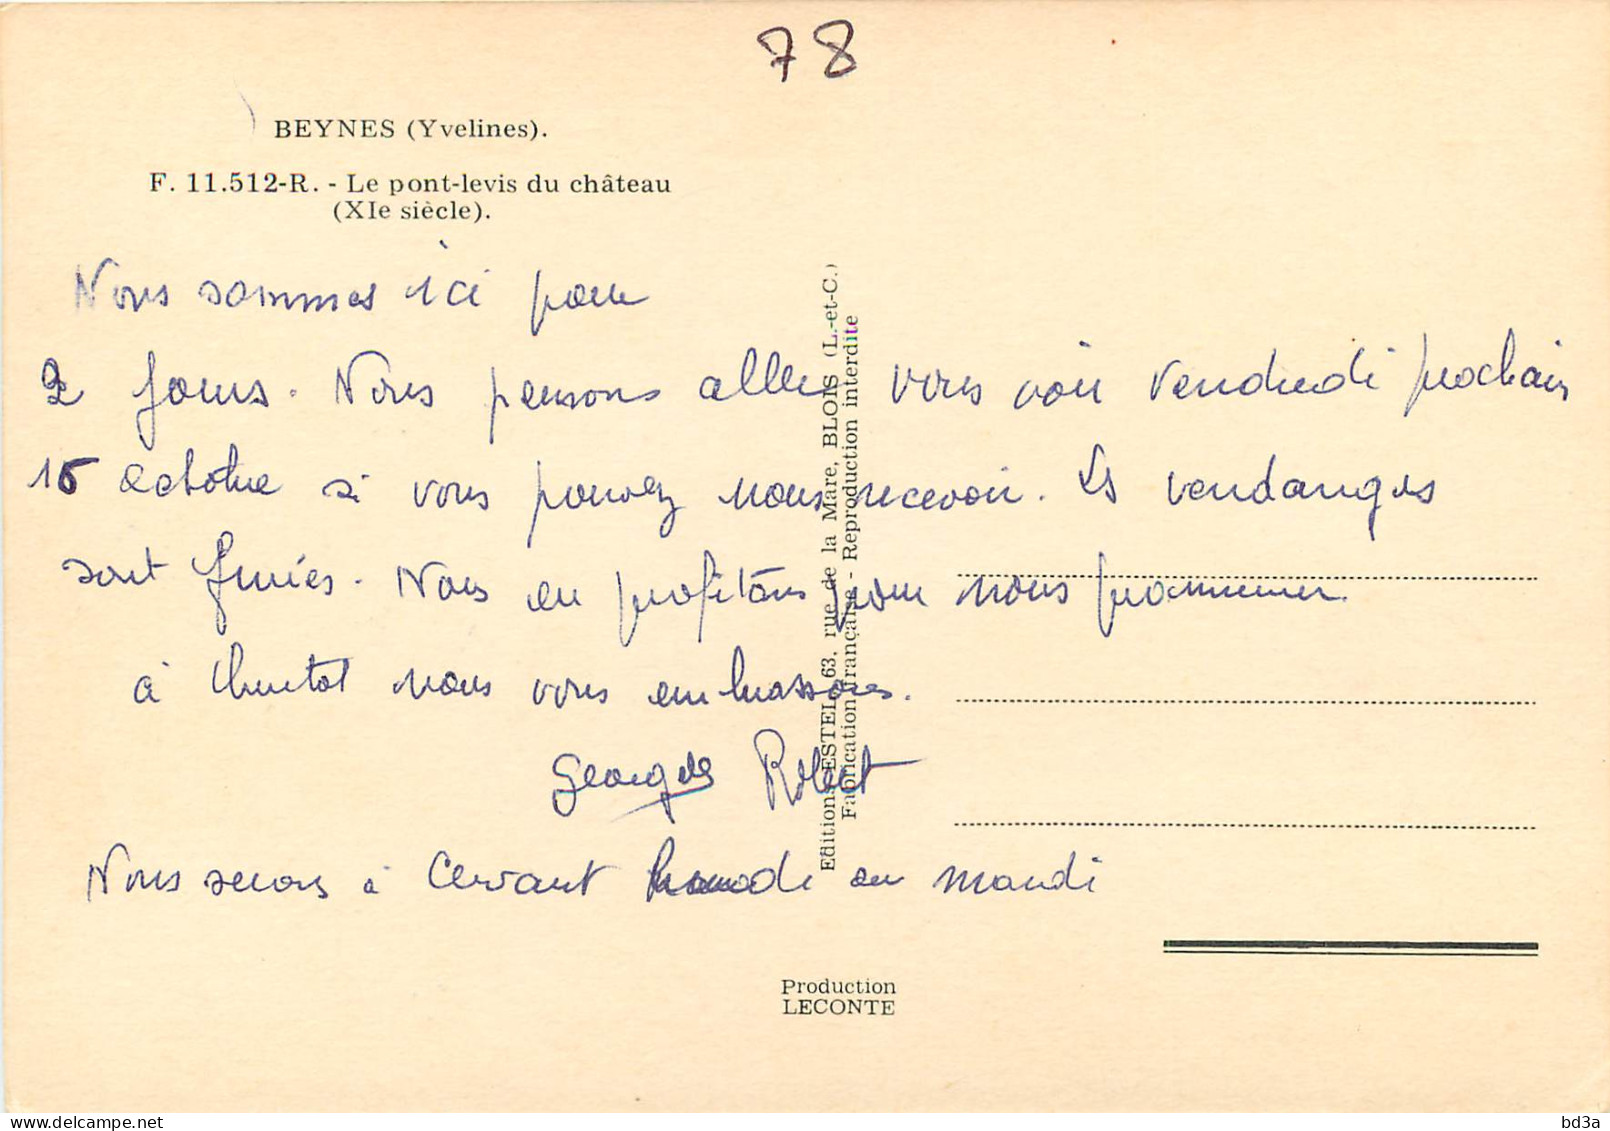 78
BEYNES (Yvelines).
F. 11.512-R. - Le pont-levis du château
(XIe siècle).
Nous sommes ici pour
2 jours. Nous pensons aller vous voir vendredi prochain
15 octobre si vous pouvez nous recevoir. Les vendanges
sont finies. Nous en profitons pour nous promener.
à bientot nous vous embrassons.
Georges Robert
Nous serons à au mardi
Editions ESTEL, 63, rue de la Mare, BLOIS (L.-et-C.)
Fabrication française - Reproduction interdite
Production
LECONTE
www.delcampe.net
bd3a